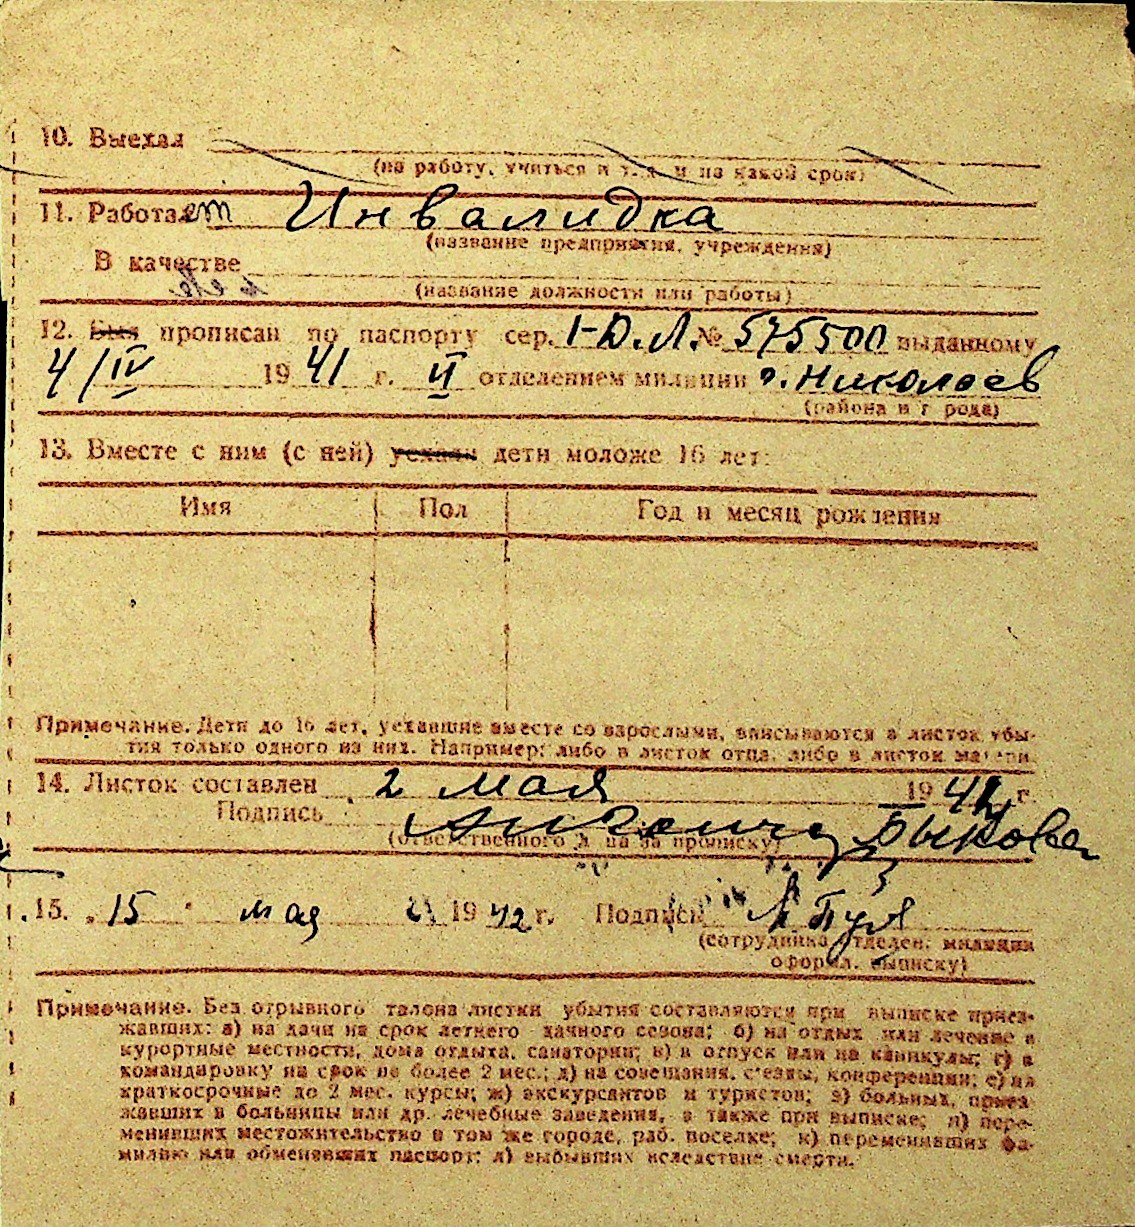 10. Выехал
(на работу, учиться и т. д. и на какой срок)
11. Работает Инвалидка
(название предприятия, учреждения)
В качестве
(название должности или работы)
12. Был прописан по паспорту сер. I-Ю.Л. № 575500 выданному
4/IV 1941 г. II отделением милиции г. Николаев
(района и города)
13. Вместе с ним (с ней) уехали дети моложе 16 лет:
Имя Пол Год и месяц рождения
Примечание. Дети до 16 лет, уехавшие вместе со взрослыми, вписываются в листок убы-
тия только одного из них. Например: либо в листок отца, либо в листок матери.
14. Листок составлен 2 мая 1942 г.
Подпись Быкова
(ответственного лица за прописку)
15. „15" мая 1942 г. Подпись
(сотрудника отделен. милиции
оформ. выписку)
Примечание. Без отрывного талона листки убытия составляются при выписке приез-
жавших: а) на дачи на срок летнего дачного сезона; б) на отдых или лечение в
курортные местности, дома отдыха, санатории; в) в отпуск или на каникулы; г) в
командировку на срок не более 2 мес.; д) на совещания, с'езды, конференции; е) на
краткосрочные до 2 мес. курсы; ж) экскурсантов и туристов; з) больных, приез-
жавших в больницы или др. лечебные заведения, а также при выписке; и) пере-
менивших местожительство в том же городе, раб. поселке; к) переменивших фа-
милию или обменявших паспорт; л) выбывших вследствие смерти.